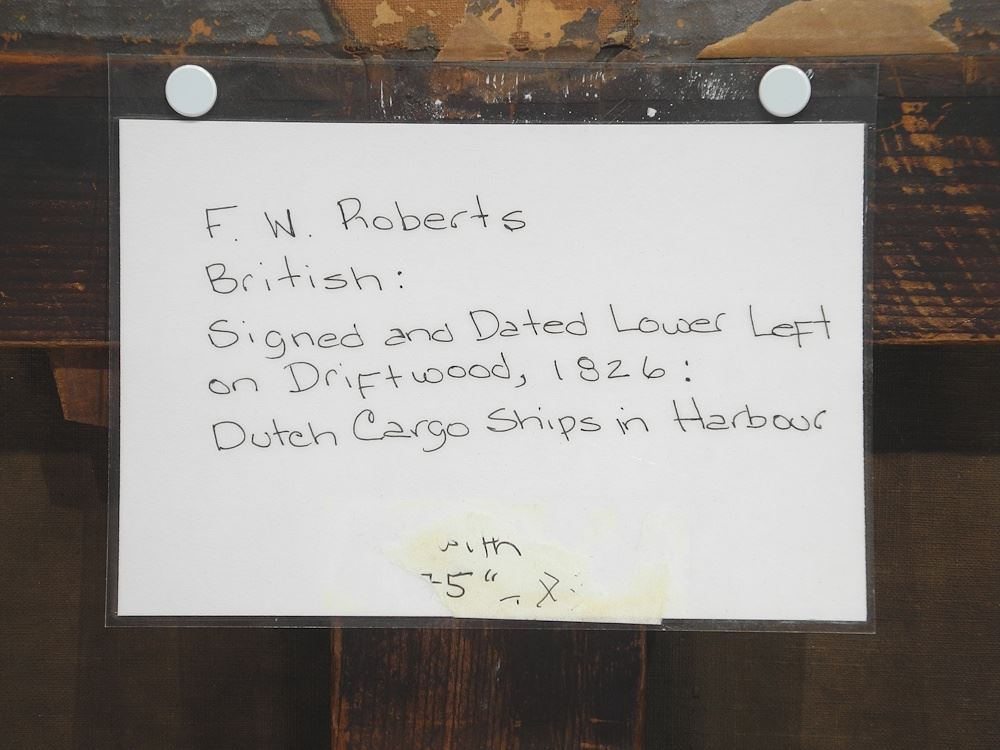 F. W. Roberts
British:
Signed and Dated Lower Left
on Driftwood, 1826:
Dutch Cargo Ships in Harbour
5" x